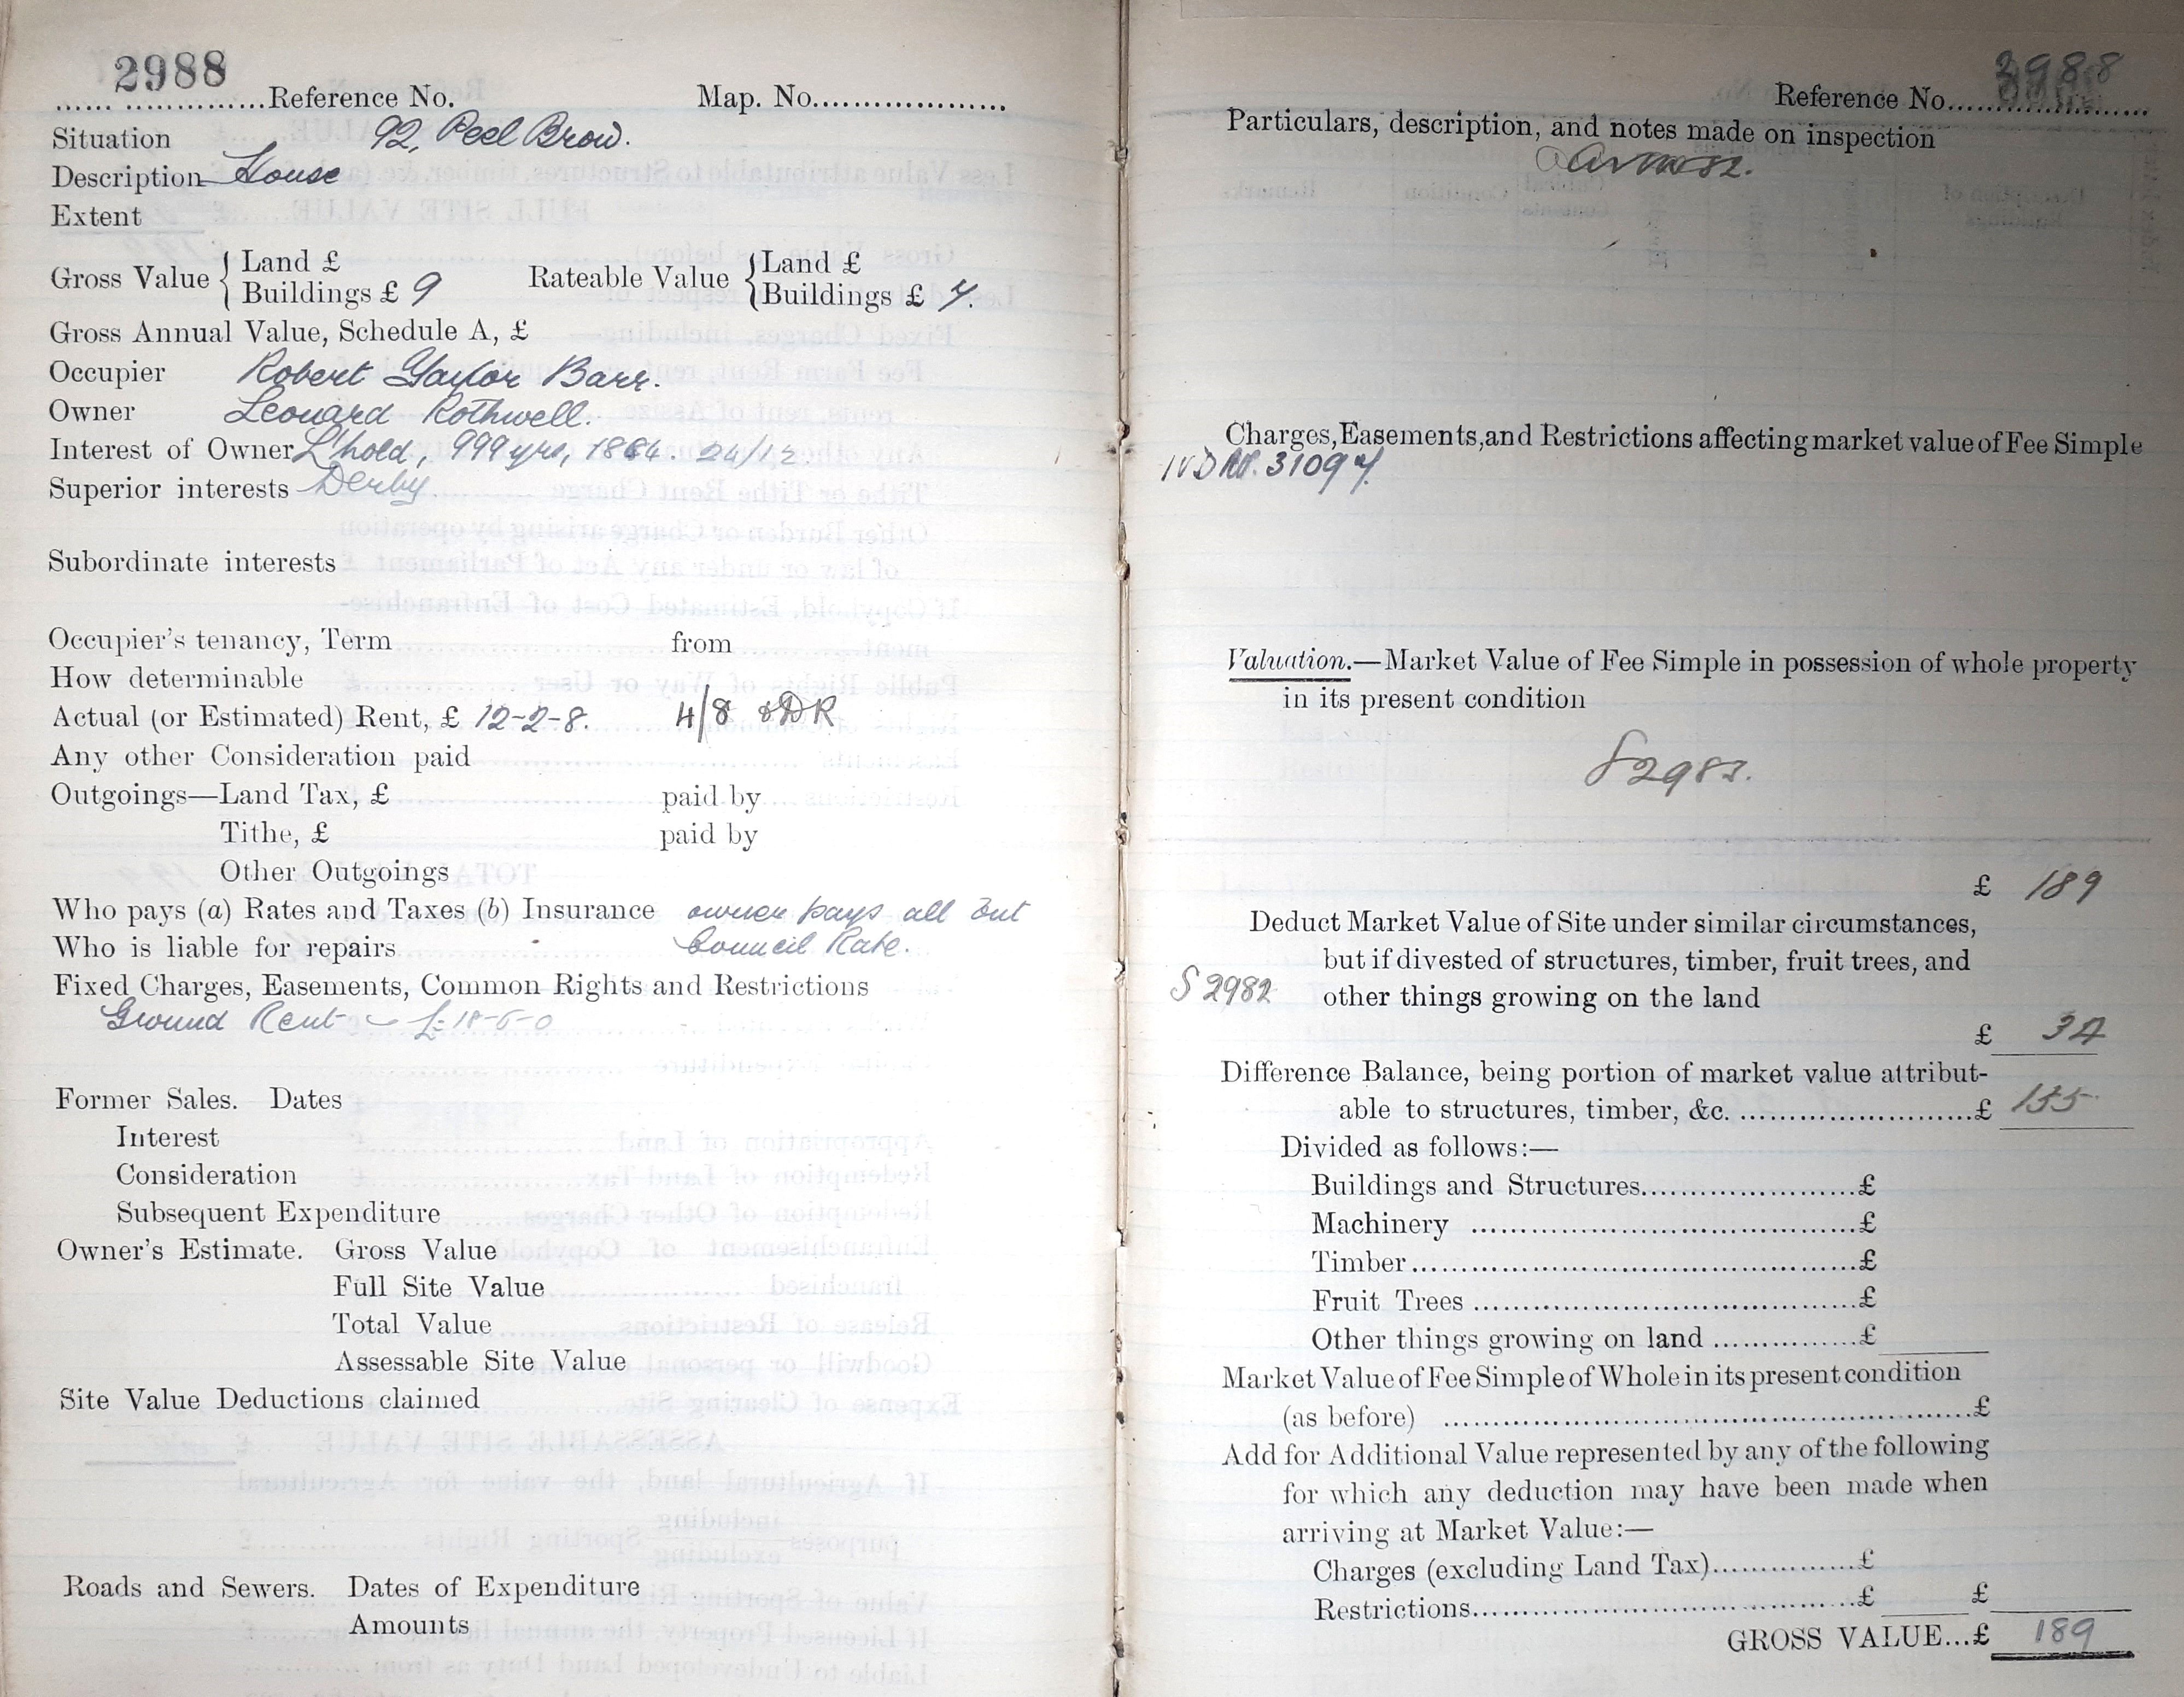 2988
Reference No. Map. No.
Situation 92, Peel Brow.
Description House
Extent
Gross Value { Land £
Buildings £ 9
Rateable Value { Land £
Buildings £ 7.
Gross Annual Value, Schedule A, £
Occupier Robert Gaylor Barr.
Owner Leonard Rothwell.
Interest of Owner L'hold, 999 yrs, 1884. 24/12.
Superior interests Derby
Subordinate interests
Occupier's tenancy, Term from
How determinable
Actual (or Estimated) Rent, £ 12-2-8. 4/8 & DR
Any other Consideration paid
Outgoings—Land Tax, £ paid by
Tithe, £ paid by
Other Outgoings
Who pays (a) Rates and Taxes (b) Insurance owner pays all but
Who is liable for repairs Council Rate.
Fixed Charges, Easements, Common Rights and Restrictions
Ground Rent £18-5-0
Former Sales. Dates
Interest
Consideration
Subsequent Expenditure
Owner's Estimate. Gross Value
Full Site Value
Total Value
Assessable Site Value
Site Value Deductions claimed
Roads and Sewers. Dates of Expenditure
Amounts
Reference No
Particulars, description, and notes made on inspection
Charges, Easements, and Restrictions affecting market value of Fee Simple
31097.
Valuation.—Market Value of Fee Simple in possession of whole property
in its present condition
£ 189
Deduct Market Value of Site under similar circumstances,
but if divested of structures, timber, fruit trees, and
S 2982 other things growing on the land
£ 34
Difference Balance, being portion of market value attribut-
able to structures, timber, &c. £ 155
Divided as follows:—
Buildings and Structures £
Machinery £
Timber £
Fruit Trees £
Other things growing on land £
Market Value of Fee Simple of Whole in its present condition
(as before) £
Add for Additional Value represented by any of the following
for which any deduction may have been made when
arriving at Market Value:—
Charges (excluding Land Tax) £
Restrictions £ £
GROSS VALUE...£ 189